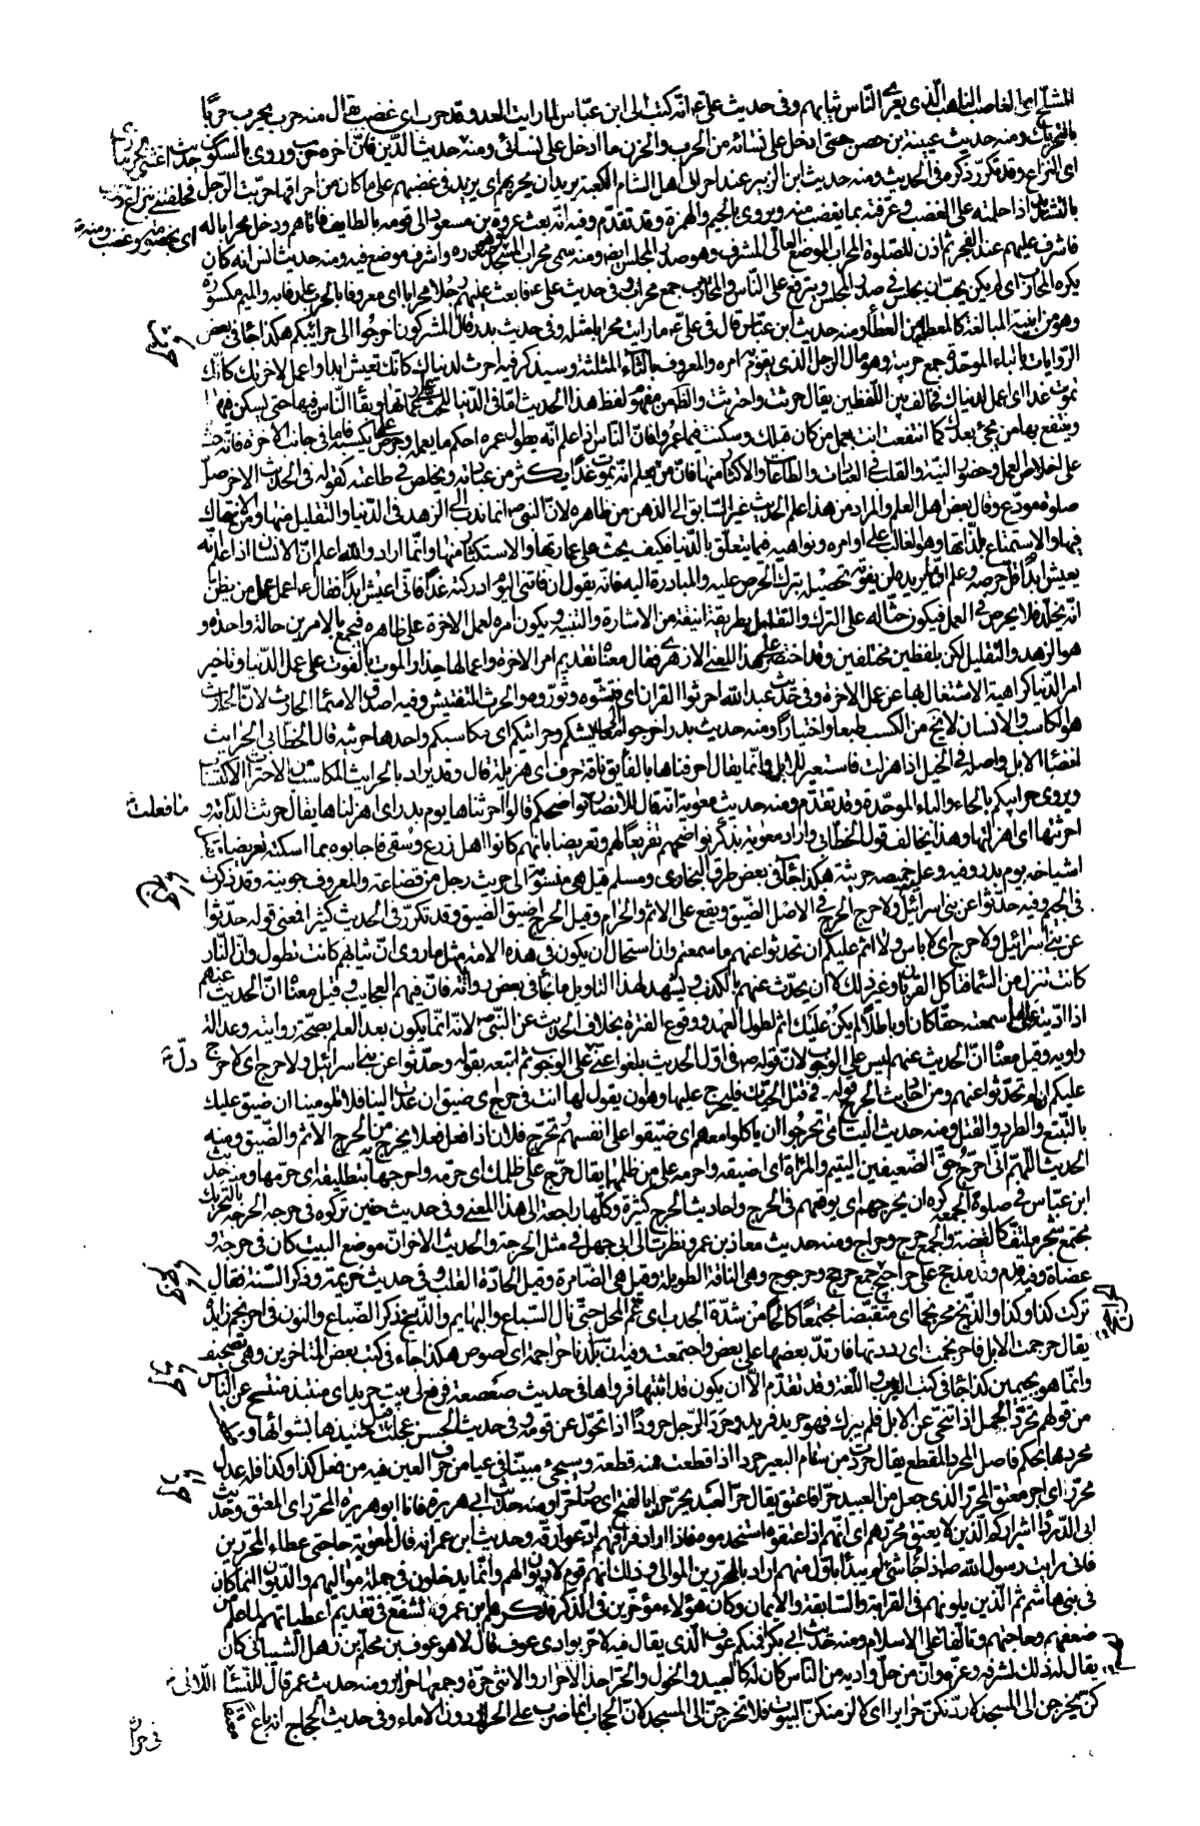 المشلّح اي الغاصب الناهب الّذي يعرّي النّاس ثيابهم وفي حديث عليّ انّه كتب الى ابن عبّاس لمّا رايت العدو قد حرب اي غضب يقال منه حرب يحرب حربًا
بالتحريك ومنه حديث عيينة بن حصن حتى ادخل على نسائه من الحرب والحزن ما ادخل على نسائي ومنه حديث الدّين فانّ اخره حرب وروي بالسكون
اي النزاع وقد تكرّر ذكره في الحديث ومنه حديث ابن الزبير عند احراق اهل الشام الكعبة يريد ان يحربهم اي يزيد في غضبهم على ما كان من احراقها حرّبت الرّجل
بالتشديد اذا حملته على الغضب وعرّفته بما يغضب منه ويروى بالجيم والهمزة وقد تقدّم وفيه انه بعث عروة بن مسعود الى قومه بالطايف فاتاهم ودخل محرابا له
فاشرف عليهم عند الفجر ثم اذن للصلوة المحراب الموضع العالي المشرف وهو صدر المجلس ايضا ومنه سمي محراب المسجد وهو صدره واشرف موضع فيه ومنه حديث انس انه كان
يكره المحاريب اي لم يكن يحبّ ان يجلس في صدر المجلس ويترفع على النّاس والمحاريب جمع محراب وفي حديث علي فابعث عليهم رجلا محرابا اي معروفا بالحرب عارفا به والميم مكسورة
وهو من ابنية المبالغة كالمعطاء من العطاء ومنه حديث ابن عبّاس قال في عليّ ما رايت محرابا مثله وفي حديث بدر قال المشركون اخرجوا الى حرائبكم هكذا جاء في بعض
الرّوايات بالباء الموحّدة جمع حريبة وهو مال الرجل الذي يقوم به امره والمعروف بالثاء المثلثة وسيذكر فيه احرث لدنياك كانّك تعيش ابدا واعمل لاخرتك كانّك
تموت غدا اي اعمل لدنياك فخالف بين اللّفظين يقال حرثت واحترثت والظاهر من مفهوم لفظ هذا الحديث امّا في الدّنيا للحثّ على عمارتها وبقاء النّاس فيها حتى يسكن فيها
وينتفع بها من يجيء بعدك كما انتفعت انت بعمل من كان قبلك وسكنت فيما عمر وافانّ النّاس اذا علم انّه يطول عمره احكم ما يعمله وحرص على ما يكسبه وامّا في جانب الاخرة فانّه حثّ
على اخلاص العمل وحضور النيّة والقلب في العبادات والطاعات والاكثار منها فانّ من يعلم انّه يموت غدًا يكثر من عبادته ويخلص في طاعته كقوله في الحديث الاخر صلّ
صلوة مودّع وقال بعض اهل العلم المراد من هذا الحديث غير السّابق الى الذهن من ظاهره لانّ النبيّ انما ندب الى الزهد في الدّنيا والتقليل منها ومن الانهماك
فيها والاستمتاع بلذّاتها وهو الغالب على اوامره ونواهيه فيما يتعلّق بالدّنيا فكيف يحثّ على عمارتها والاستكثار منها وانّما اراد والله اعلم انّ الانسان اذا علم انه
يعيش ابدًا قلّ حرصه وعلم انّ ما يريده لن يفوته تحصيله بترك الحرص عليه والمبادرة اليه فانّه يقول ان فاتني اليوم ادركته غدًا فاني اعيش ابدًا فقال اعمل عمل من يظنّ
انّه يخلّد فلا يحرص في العمل فيكون حثّا له على الترك والتقليل بطريقة انيقة من الاشارة والتنبيه ويكون امره لعمل الاخرة على ظاهره فيجمع بالامرين حالة واحدة و
هو الزهد والتقليل لكن بلفظين مختلفين وقد اختصر هذا المعنى الازهري فقال معناه تقديم امر الاخرة واعمالها حذار الموت بالفوت على عمل الدّنيا وتاخير
امر الدّنيا كراهية الاشتغال بها عن عمل الاخرة وفي حديث عبد الله احرثوا القران اي فتّشوه وثوّروه والحرث التفتيش وفيه اصدق الاسماء الحارث لانّ الحارث
هو الكاسب والانسان لا يخلو من الكسب طبعا واختيارًا ومنه حديث بدر اخرجوا الى معايشكم وحرائثكم اي مكاسبكم واحدها حريثة قال الخطّابي الحرائث
انضاء الابل واصله في الخيل اذا هزلت فاستعير للابل وانّما يقال احرفناها بالفاء يق ناقة حرف اي هزيلة قال وقد يراد بالحرائث المكاسب من الاحتراث الاكتساب
ويروى حرايبكم بالحاء والباء الموحّدة وقد تقدّم ومنه حديث معوية انّه قال للانصار ما فعلت نواضحكم قالوا حرثناها يوم بدر اي اهزلناها يقال حرثت الدّابّة و
احرثتها اي اهزلتها وهذا يخالف قول الخطّابي واراد معوية بذكر نواضحهم تقريعًا لهم وتعريضا بانهم كانوا اهل زرع وسقي فاجابوه بما اسكته تعريضا بقتل
اشياخه يوم بدر وفيه وعليه خميصة حريثيّة هكذا جاء في بعض طرق البخاري ومسلم قيل هي منسوبة الى حريث رجل من قضاعة والمعروف جونية وقد ذكرت
في الجيم وفيه حدّثوا عن بني اسرائيل ولا حرج الحرج في الاصل الضّيق ويقع على الاثم والحرام وقيل الحرج اضيق الضّيق وقد تكرّر في الحديث كثيرا فمعنى قوله حدّثوا
عن بني اسرائيل ولا حرج اي لا باس ولا اثم عليكم ان تحدثوا عنهم ما سمعتم وان استحال ان يكون في هذه الامة مثل ما روي انّ ثيابهم كانت تطول وانّ النّار
كانت تنزل من السّماء فتاكل القربان وغير ذلك لا ان يحدّث عنهم بالكذب ويشهد لهذا التاويل ما جاء في بعض رواياته فانّ فيهم العجايب وقيل معناه انّ الحديث عنهم
اذا ادّيته على ما سمعته حقّا كان او باطلا لم يكن عليك اثم لطول العهد ووقوع الفترة بخلاف الحديث عن النّبيّ لانّه انّما يكون بعد العلم بصحّة روايته وعدالة
راويه وقيل معناه انّ الحديث عنهم ليس على الوجوب لانّ قوله في اوّل الحديث بلّغوا عنّي على الوجوب ثم اتبعه بقوله وحدّثوا عن بني اسرائيل ولا حرج اي لا حرج
عليكم ان لم تحدّثوا عنهم ومن احاديث الحرج قوله في قتل الحيّات فليحرّج عليها وهو ان يقول لها انت في حرج اي ضيق ان عدت الينا فلا تلومينا ان نضيق عليك
بالتّتبّع والطرد والقتل ومنه حديث اليتامى تحرّجوا ان ياكلوا معهم اي ضيّقوا على انفسهم وتحرّج فلان اذا فعل فعلا يخرج به من الحرج الاثم والضّيق ومنه
الحديث اللّهمّ انّي احرّج حقّ الضّعيفين اليتيم والمراة اي اضيقه واحرمه على من ظلمهما يقال حرّج على ظلمك اي حرّمه واحرجها بتطليقة اي حرّمها ومنه حديث
ابن عبّاس في صلوة الجمعة كره ان يحرجهم اي يوقعهم في الحرج واحاديث الحرج كثيرة وكلّها راجعة الى هذا المعنى وفي حديث حنين تركوه في حرجة الحرجة بالتحريك
مجتمع شجر ملتفّ كالغيضة والجمع حرج وحراج ومنه حديث معاذ بن عمرو نظرت الى ابي جهل في مثل الحرجة والحديث الاخر انّ موضع البيت كان في حرجة و
عضاة وفيه قدم وفد مذحج على حراجيج جمع حرجج وحرجوج وهي الناقة الطويلة وقيل هي الضّامرة وقيل الحادّة القلب وفي حديث خزيمة وذكر السّنة فقال
تركت كذا وكذا والذّيخ محرنجما اي متقبّضا مجتمعًا كالحا من شدّة الجدب اي عمّ المحل حتّى نال السّباع والبهايم والذّيخ ذكر الضّباع والنون في احرنجم زايدة
يقال حرجمت الابل فاحرنجمت اي رددتها فارتدّ بعضها على بعض واجتمعت وفيه انّ بلدنا حراجمة اي لصوص هكذا جاء في كتب بعض المتاخرين وهو تصحيف
وانّما هو بجيمين كذا جاء في كتب الغريب واللّغة وقد تقدّم الّا ان يكون قد اثبتها فرواها في حديث صعصعة فرفع لي بيت حريد اي منتبذ متنحّ عن النّاس
من قولهم تحرّد الجمل اذا تنحّى عن الابل فلم يبرك فهو حريد فريد وحرد الرّجل حرودًا اذا تحوّل عن قومه وفي حديث الحسن عجلت قبل حنيذها بشوائها وبها
محردها بحكم فاصل المحرد المقطع يقال حردت من سنام البعير حردا اذا قطعت منه قطعة وسيجيء مبيّنًا في عيا من حرف العين فيه من فعل كذا وكذا فله عدل
محرّر اي اجر معتق المحرّر الذي جعل من العبيد حرّا فاعتق يقال حرّ العبد يحرّ حرارًا بالفتح اي صار حرّا ومنه حديث ابي هريرة فانا ابو هريرة المحرّر اي المعتق وحديث
ابي الدّرداء اشراركم الّذين لا يعتق محرّرهم اي انّهم اذا اعتقوه استخدموه فاذا اراد فراقهم ادّعوا رقّه وحديث ابن عمر انه قال لمعوية حاجتي عطاء المحرّرين
فاني رايت رسول الله اذا جاءه شيء لم يبدا باوّل منهم اراد بالمحرّرين الموالي وذلك انهم قوم لا ديوان لهم وانّما يدخلون في جملة مواليهم والدّيوان انّما كان
في بني هاشم ثم الّذين يلونهم في القرابة والسّابقة والايمان وكان هؤلاء مؤخّرين في الذكر فذكرهم ابن عمر وتشفّع في تقديم اعطياتهم لما علم من
ضعفهم وحاجتهم وتالّفا على الاسلام ومنه حديث ابي بكر افمنكم عوف الّذي يقال فيه لا حرّ بوادي عوف قال لا هو عوف بن محلّم بن ذهل الشّيباني كان
يقال له ذلك لشرفه وعزّه وانّ من حلّ واديه من النّاس كان له كالعبيد والخول والحرّ احد الاحرار والانثى حرّة وجمعها حرائر ومنه حديث عمر قال للنّساء اللّاتي
كنّ يخرجن الى المسجد لاردّنكنّ حرايرا اي لالزمنكنّ البيوت فلا تخرجن الى المسجد لانّ الحجاب انّما ضرب على الحراير دون الاماء وفي حديث الحجاج انه باع
ما فعلت